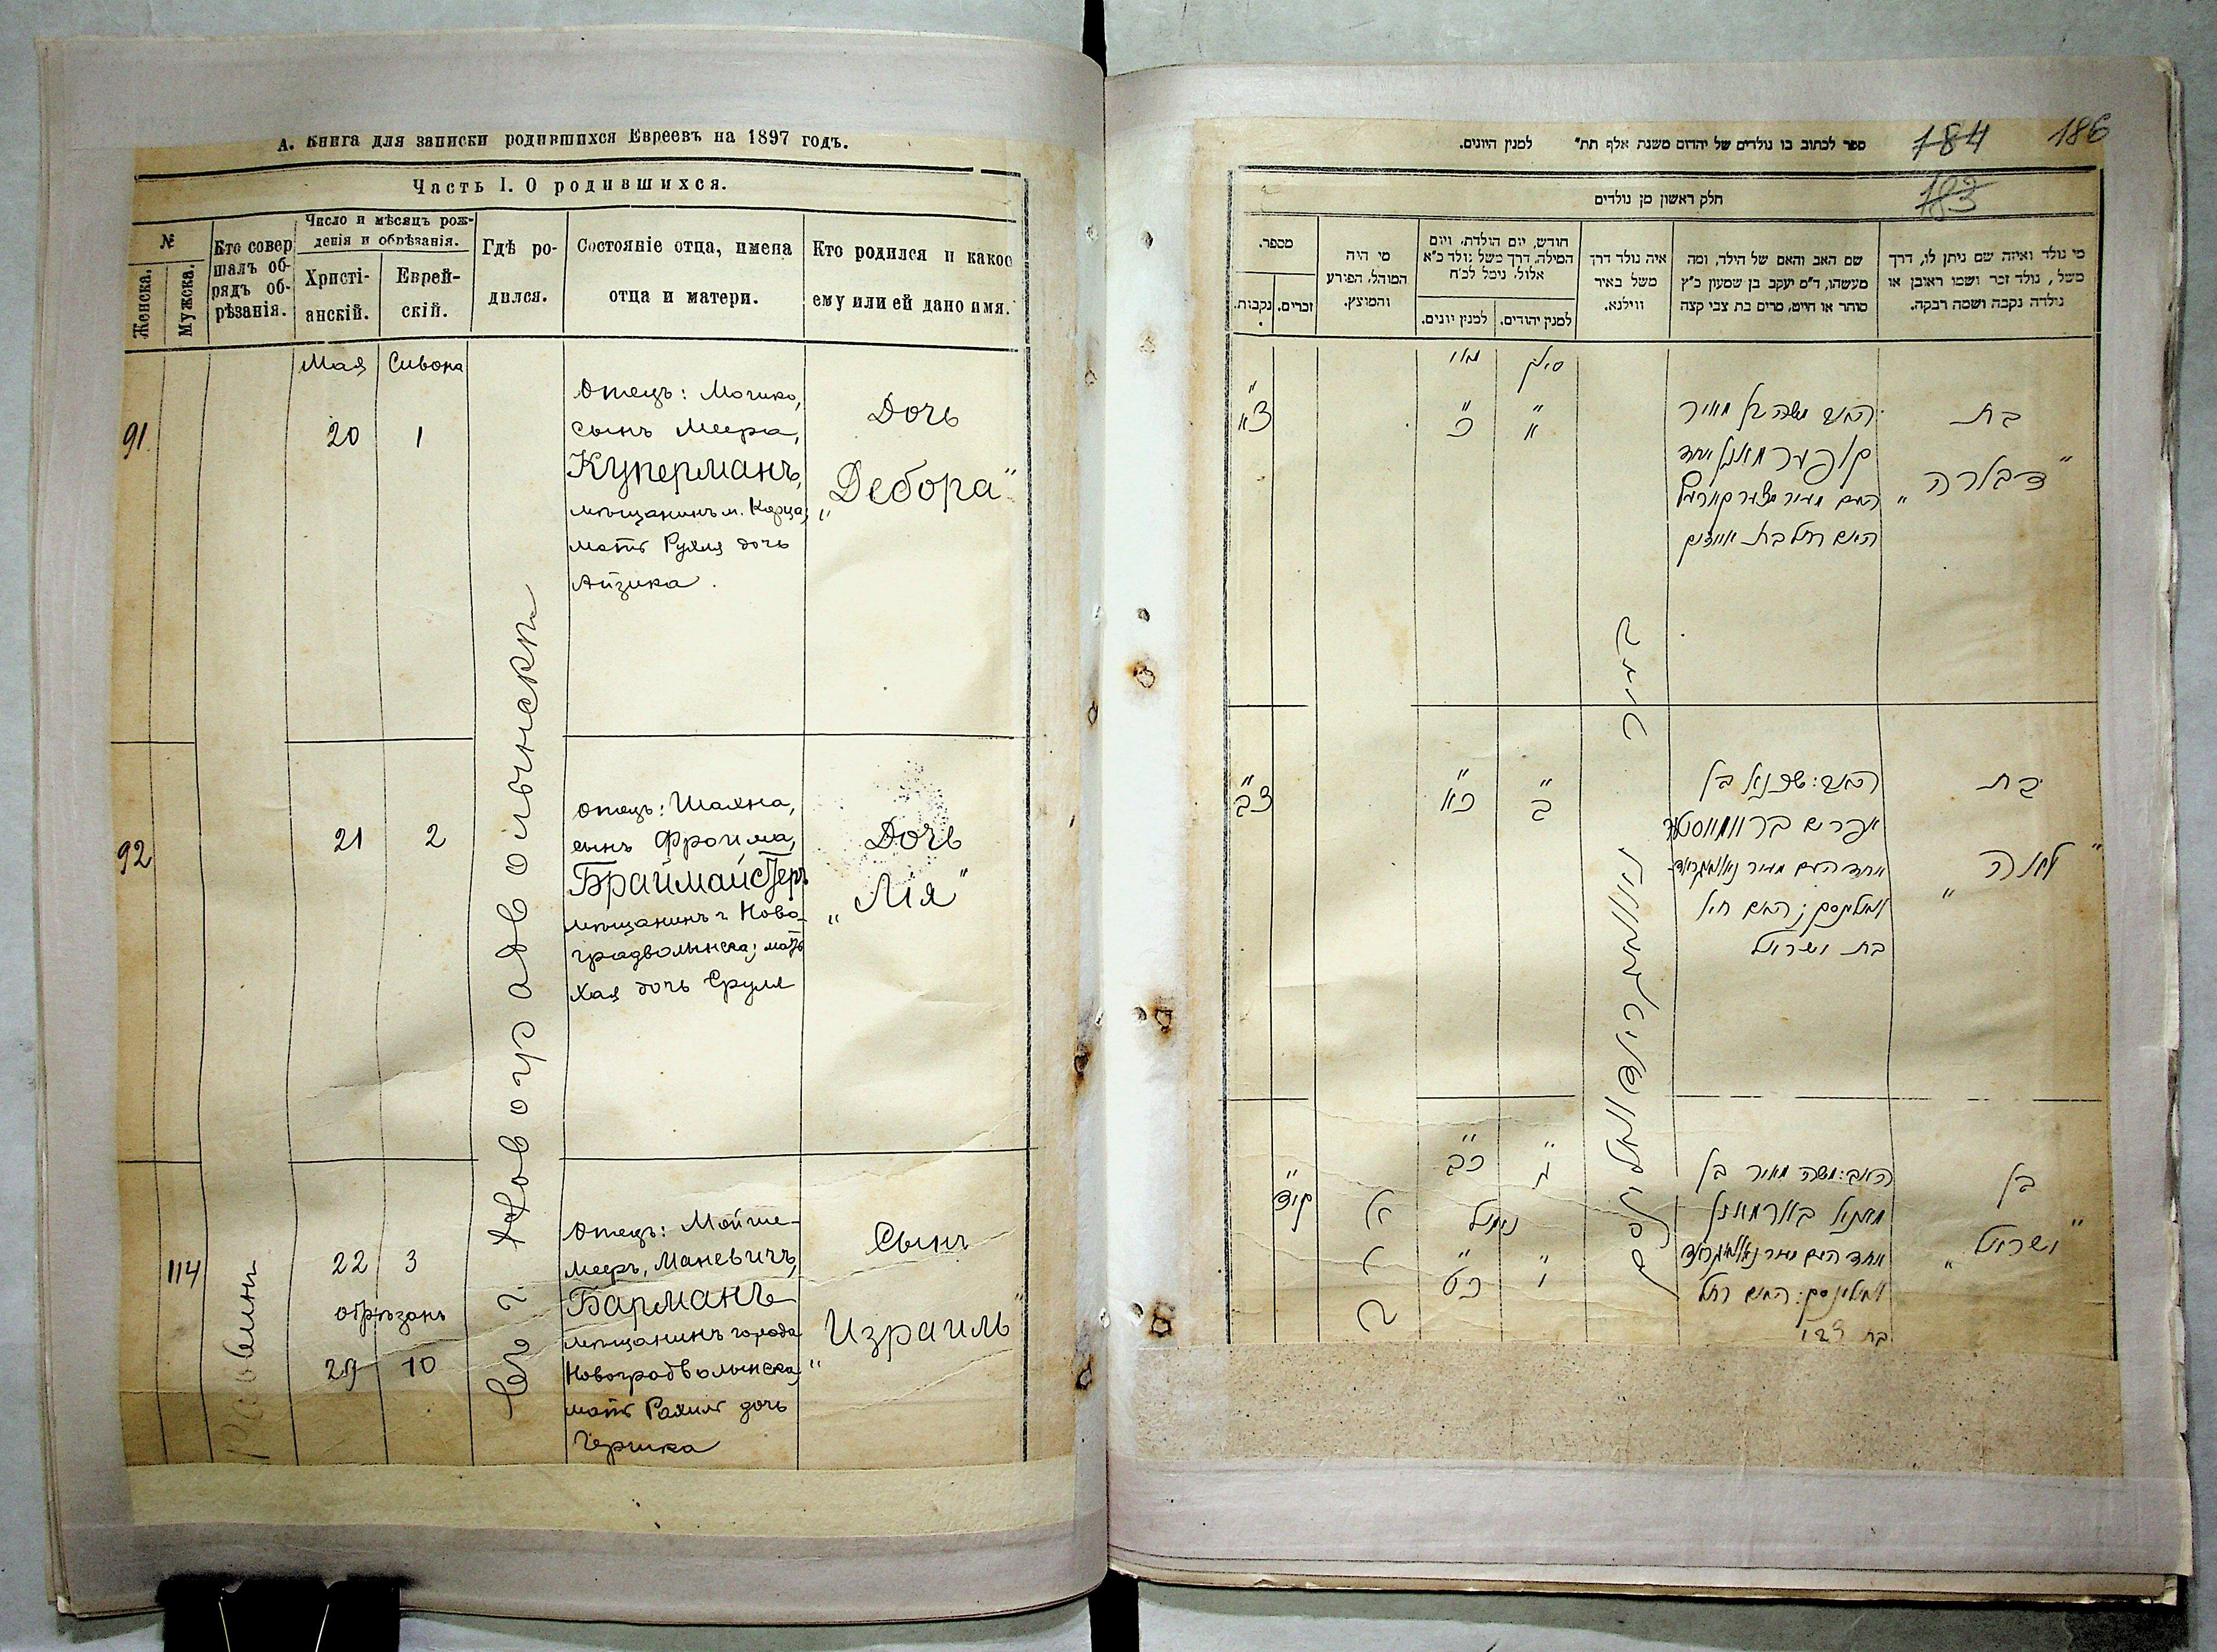 А. Книга для записки родившихся Евреевъ на 1897 годъ.
Часть I. О родившихся.
№
Женска.
Мужска.
Кто совер
шалъ об-
рядъ об-
рѣзанія.
Число и мѣсяцъ рож-
денія и обрѣзанія.
Христі-
анскій.
Еврей-
скій.
Гдѣ ро-
дился.
Состояніе отца, имена
отца и матери.
Кто родился и какое
ему или ей дано имя.
Мая
Сивона
91
20
1
Отецъ: Мошко,
сынъ Меера,
Куперманъ,
мѣщанинъ м. Корца;
мать Рухля дочь
Айзика.
Дочь
„Дебора"
Въ г. Новоградволынскѣ
92
21
2
Отецъ: Шахна,
сынъ Фроима,
Браймайстеръ
мѣщанинъ г. Ново-
градволынска; мать
Хая дочь Сруля
Дочь
„Лія"
114
Раввинъ
22
3
обрѣзанъ
29
10
Отецъ: Мойше-
Мееръ, Маневичъ,
Барманъ
мѣщанинъ города
Новоградволынска,
мать Рахиль дочь
Гершка
Сынъ
„Израиль"
184
186
183
ספר לכתוב בו נולדים של יהדום משנת אלף תת" למנין היונים.
חלק ראשון מן נולדים
מי נולד ואיזה שם ניתן לו, דרך
משל, נולד זכר ושמו ראובן או
נולדה נקבה ושמה רבקה.
שם האב והאם של הילד, ומה
מעשהו, ד"מ יעקב בן שמעון כ"ץ
סוחר או חייט, מרים בת צבי קצה
איה נולד דרך
משל באיר
ווילנא.
חודש, יום הולדת, ויום
המילה, דרך משל נולד כ"א
אלול, נימל לכ"ח
למנין יהודים.
למנין יונים.
מי היה
המוהל, הפורע
והמוצץ.
מספר.
זכרים.
נקבות.
סיון
מאי
בת
„דבורה"
האב משה בן מאיר
קופערמאן אחד
האם רחל בת אייזיק
א
כ
צא
בת
„לאה"
האב: שכנא בן
אפרים
האם חי'
בת ישראל
ב
כא
צב
בן
„ישראל"
האב: משה מאיר בן
בארמאן
האם רחל
בת צבי
ג
כב
נימול
י
כט
קיד